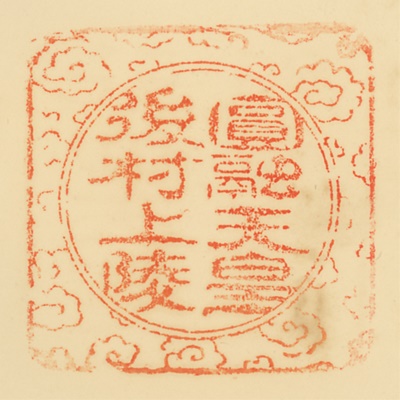 圓融天皇
後村上陵